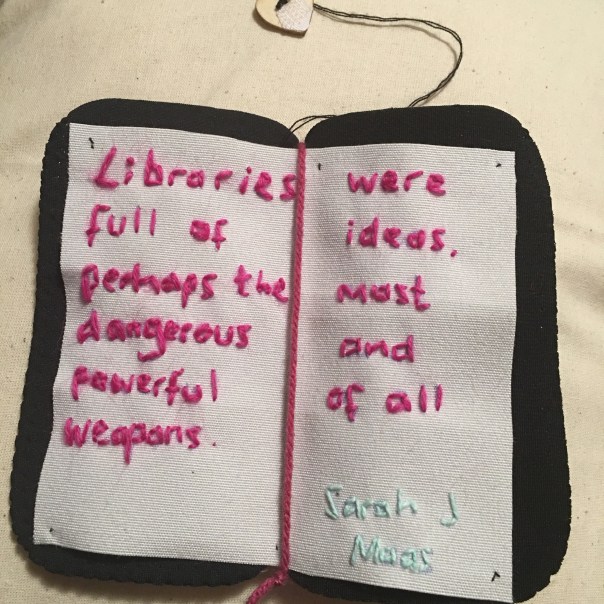 Libraries were
full of ideas,
perhaps the most
dangerous and
powerful of all
weapons.
Sarah J
Maas